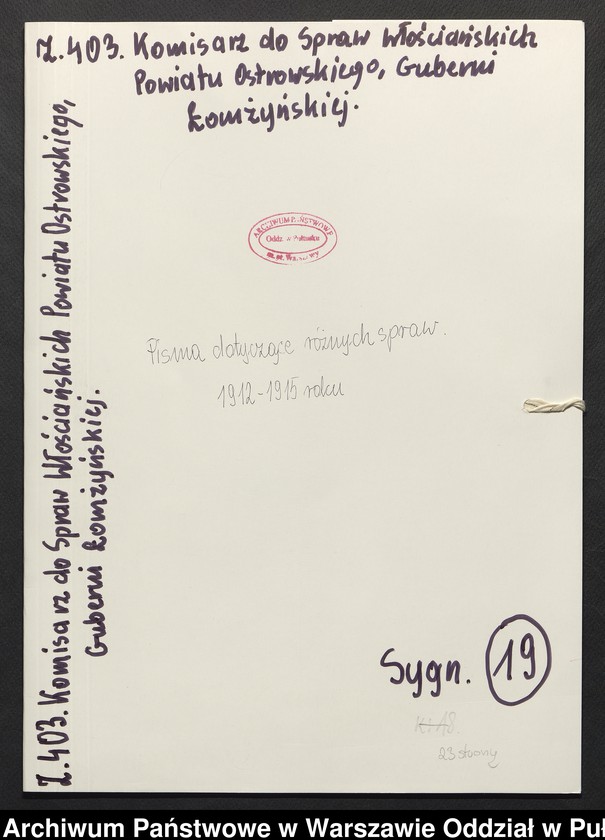 Z.403. Komisarz do Spraw Włościańskich
Powiatu Ostrowskiego, Guberni
Łomżyńskiej.
Z.403. Komisarz do Spraw Włościańskich Powiatu Ostrowskiego,
Guberni Łomżyńskiej.
ARCHIWUM PAŃSTWOWE
Oddz. w Pułtusku
m. st. Warszawy
Pisma dotyczące różnych spraw.
1912-1915 roku
Sygn. 19
23 strony
Archiwum Państwowe w Warszawie Oddział w Puł